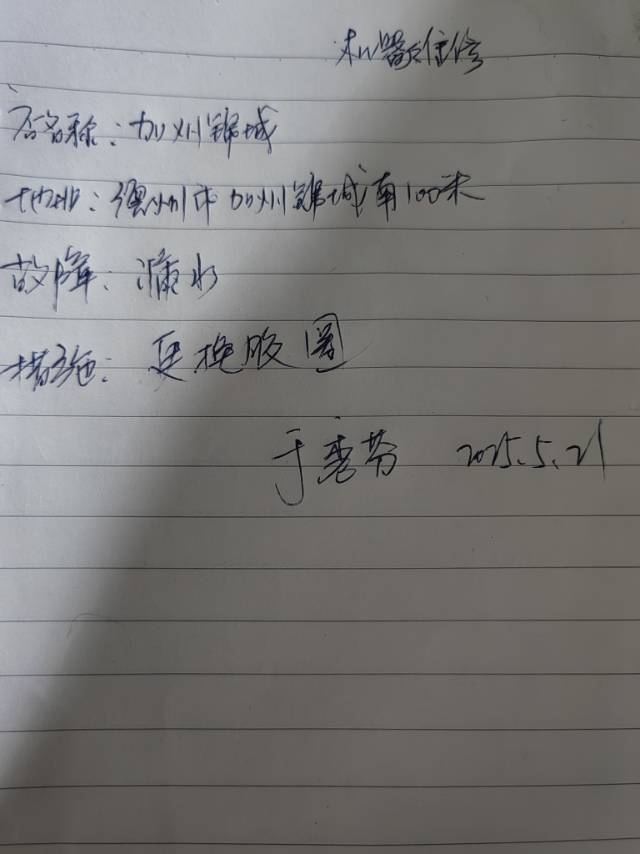 机器后维修
店名称：加州锦城
地址：德州市加州锦城南100米
故障：滴水
措施：更换胶圈
于秀芬 2025.5.21